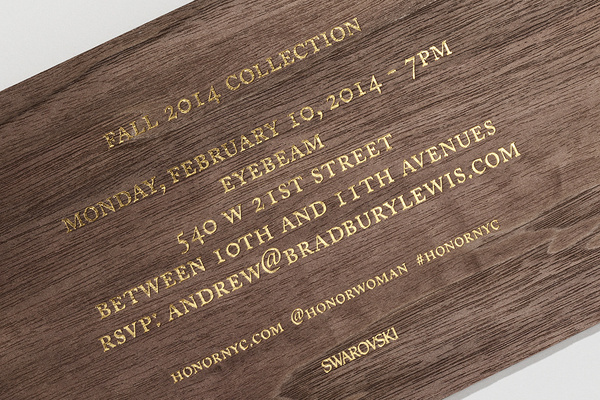 FALL 2014 COLLECTION
MONDAY, FEBRUARY 10, 2014 - 7PM
EYEBEAM
540 W 21ST STREET
BETWEEN 10TH AND 11TH AVENUES
RSVP: ANDREW@BRADBURYLEWIS.COM
HONORNYC.COM @HONORWOMAN #HONORNYC
SWAROVSKI